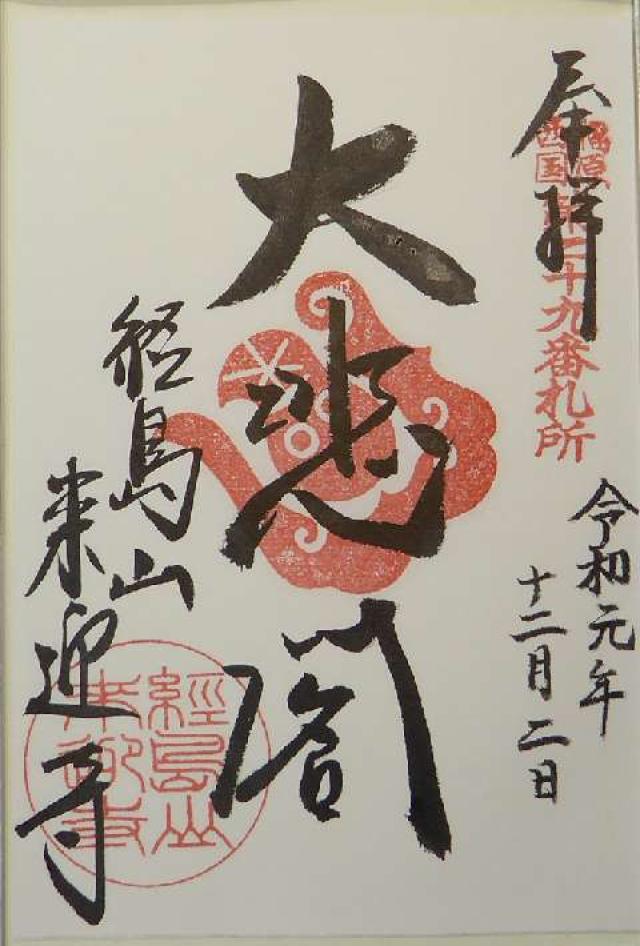 奉拝
福原
西国
第二十九番札所
令和元年
十二月二日
大悲閣
経島山
来迎寺
經島山
来迎寺